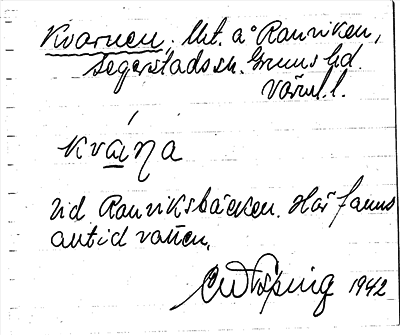 Kvarnen, Mt. a° Ranviken,
Segerstads sn. Grums hd
Värml. l.
kvàṇa
Vid Ranviksbäcken. Här fanns
alltid vatten.
1942